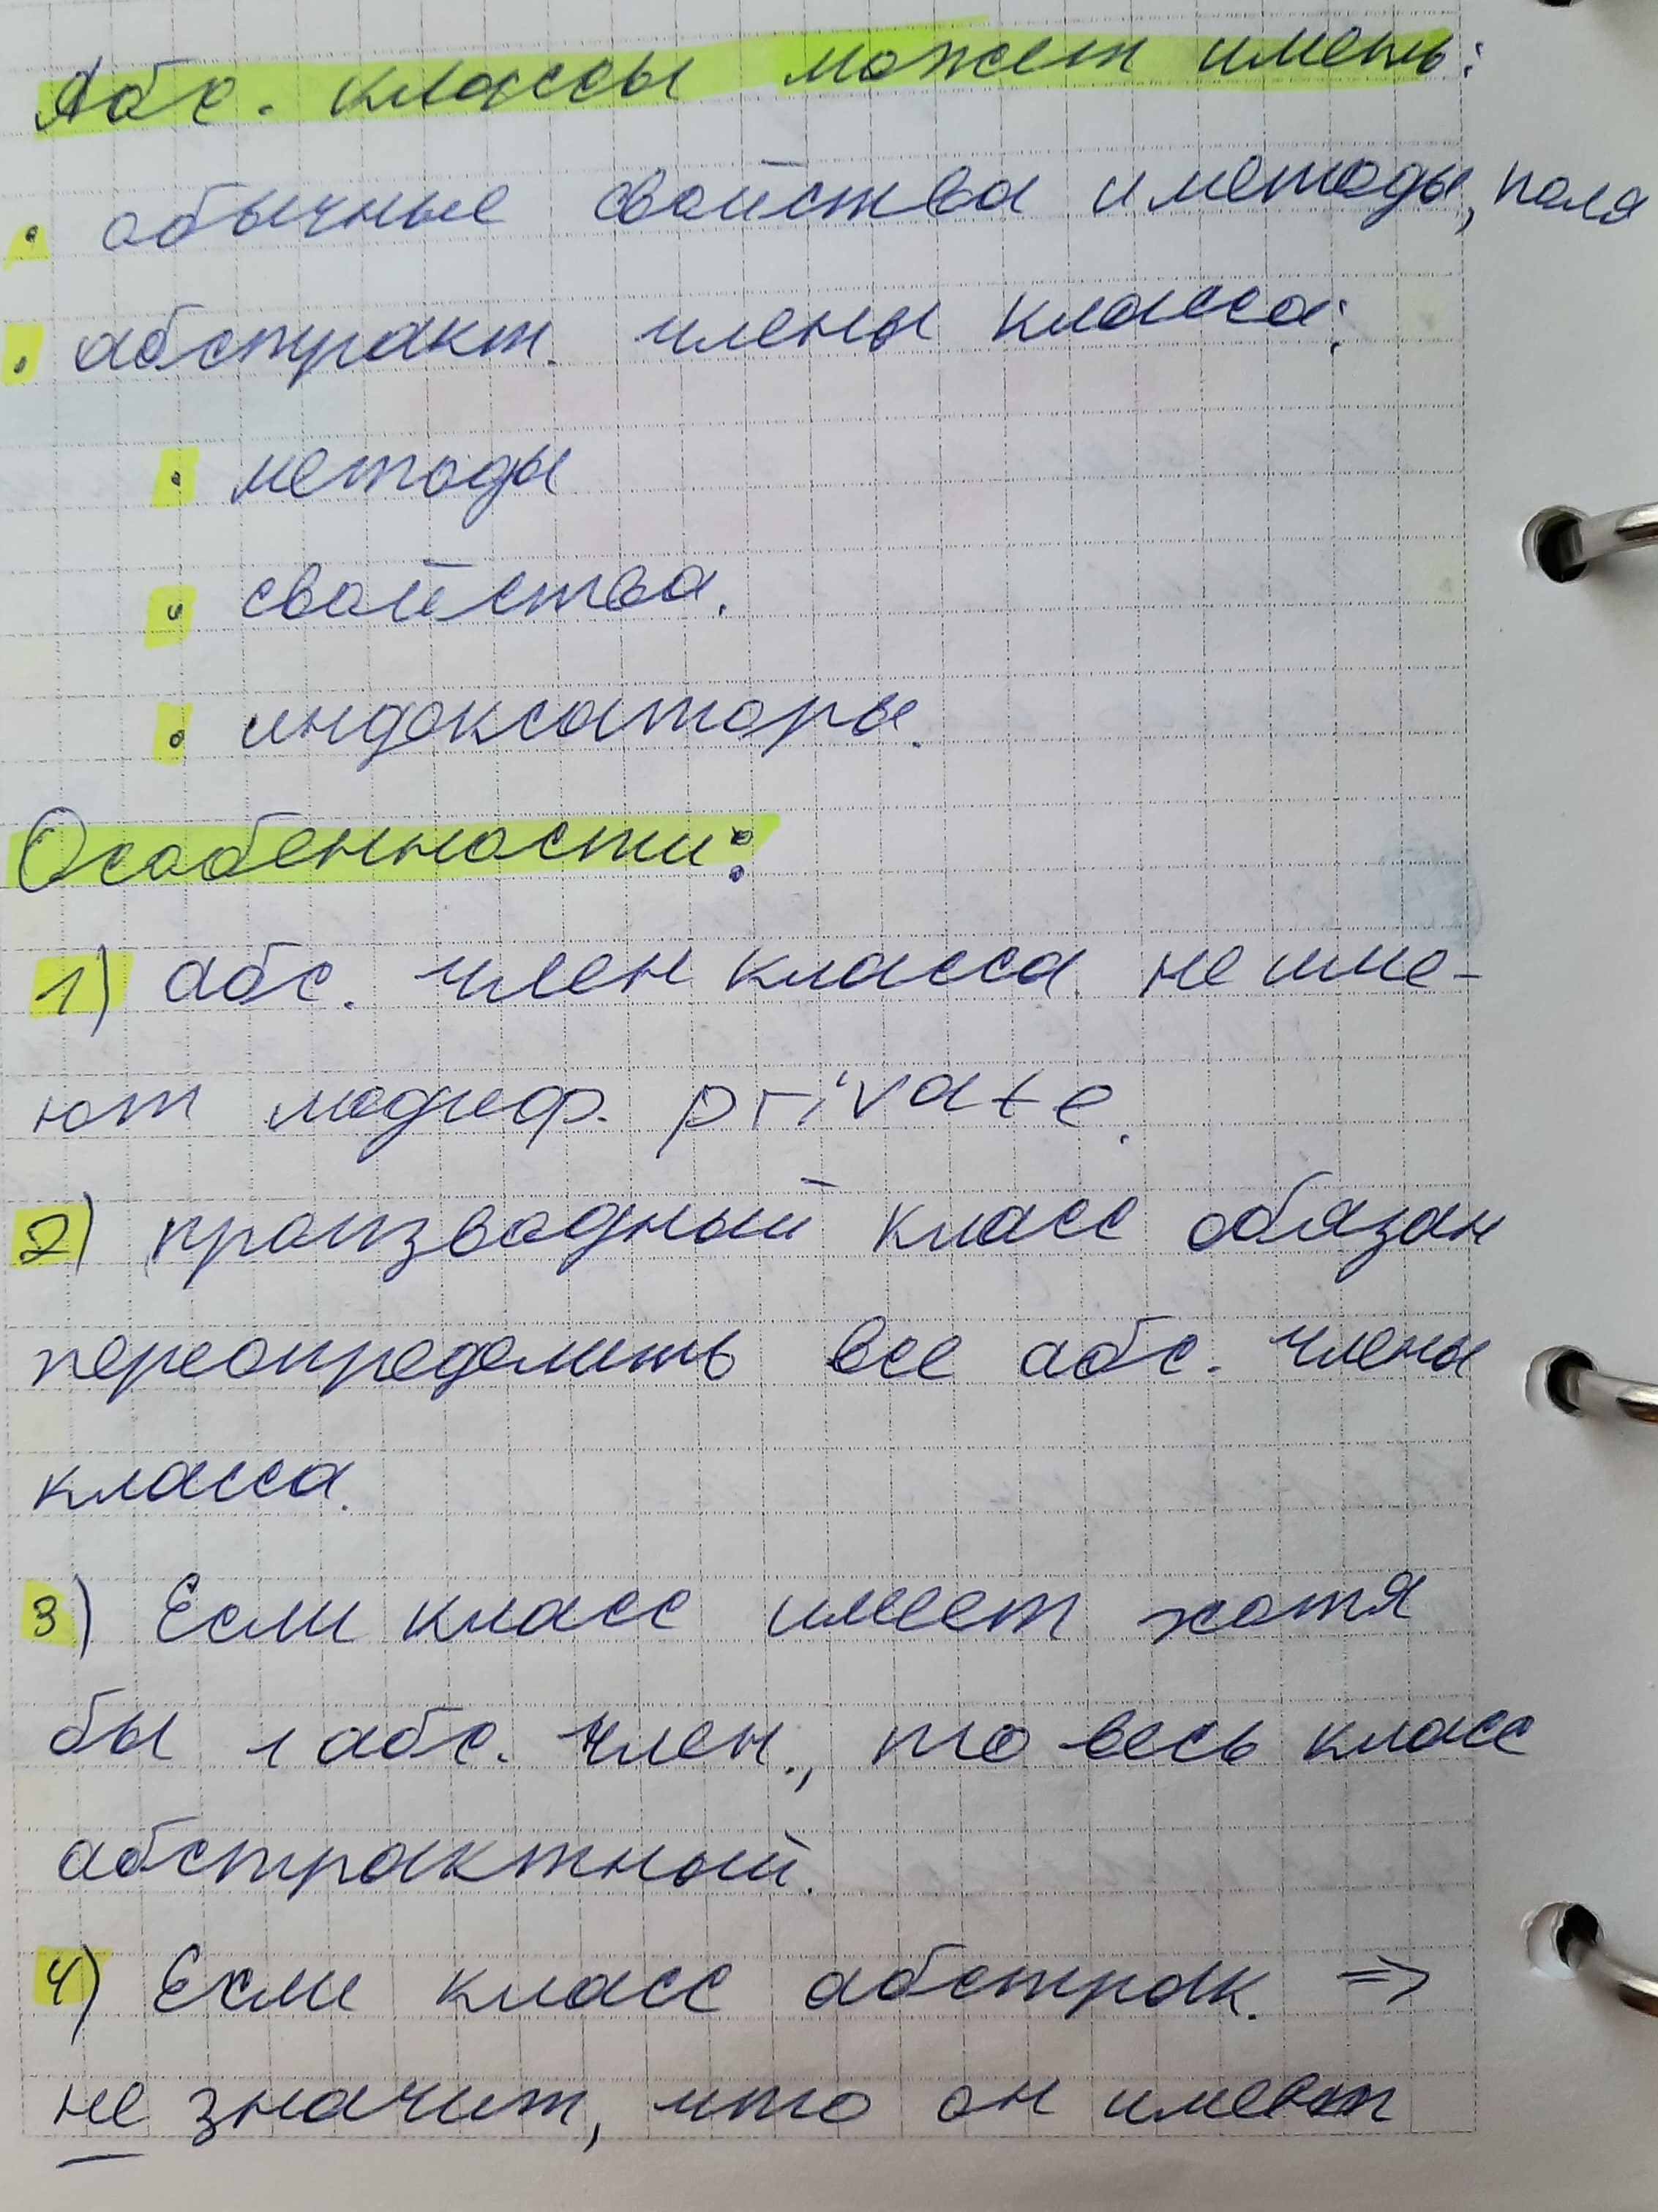 Абс. классы может иметь:
• обычные свойства и методы, поля
• абстракт. члены класса:
• методы
• свойства.
• индексаторы.
Особенности:
1) абс. член класса не име-
ют модиф. private.
2) производный класс обязан
переопределить все абс. члены
класса.
3) Если класс имеет хотя
бы 1 абс. член., то весь класс
абстрактный.
4) Если класс абстрак. =>
не значит, что он имеет